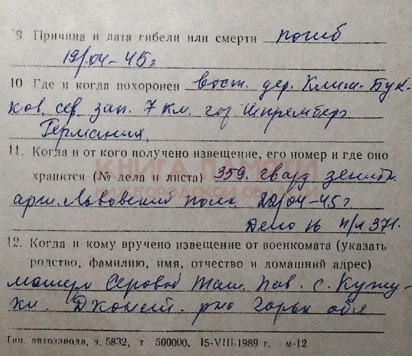 9 Причина и дата гибели или смерти погиб
19/04-45г
10 Где и когда похоронен вост. дер. Клиш-Бук-
ков, сев. зап. 7 км. гор. Шпремберг
Германия.
11. Когда и от кого получено извещение, его номер и где оно
КНИГА ПАМЯТИ
хранится (№ дела и листа) 359. гвард зенитн
НИЖЕГОРОДСКОЙ ОБЛАСТИ
арт. Львовский полк 22/04-45г.
Дело 16 п/л 371.
12. Когда и кому вручено извещение от военкомата (указать
родство, фамилию, имя, отчество и домашний адрес)
матери Серовой Пав. с.
Д. р-на Горьк обл
Тип. автозавода, з. 5832, т 500000, 15-VIII-1989 г. м-12